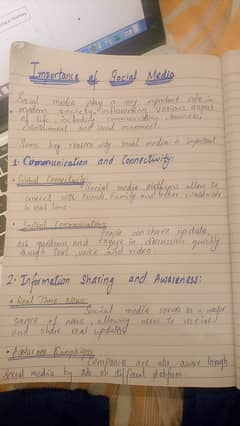 Importance of Social Media
Social media play a very important role in
modern society influencing various aspect
of life including communication, business,
entertainment and social movements.
Some key reasons why social media is important
1. Communication and Connectivity:
• Global Connectivity:
Social media platforms allow to
connect with friends, family and other worldwide
in real time.
• Instant Communication:
People can share update,
ask questions, and engage in discussion quickly
through text, voice and video
2. Information Sharing and Awareness:
• Real Time News:
Social media serves as a major
source of news, allowing users to receive
and share real updates
• Awareness Campaigns:
Companies are also aware through
social media by Ads on different platform.